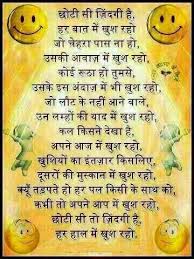 छोटी सी ज़िंदगी है,
हर बात में खुश रहो
जो चेहरा पास ना हो,
उसकी आवाज़ में खुश रहो,
कोई रूठा हो तुमसे,
उसके इस अंदाज़ में भी खुश रहो,
जो लौट के नहीं आने वाले,
उन लम्हों की याद में खुश रहो,
कल किसने देखा है,
अपने आज में खुश रहो,
खुशियों का इंतज़ार किसलिए,
दूसरों की मुस्कान में खुश रहो,
क्यूँ तड़पते हो हर पल किसी के साथ को,
कभी तो अपने आप में खुश रहो,
छोटी सी तो ज़िंदगी है,
हर हाल में खुश रहो.